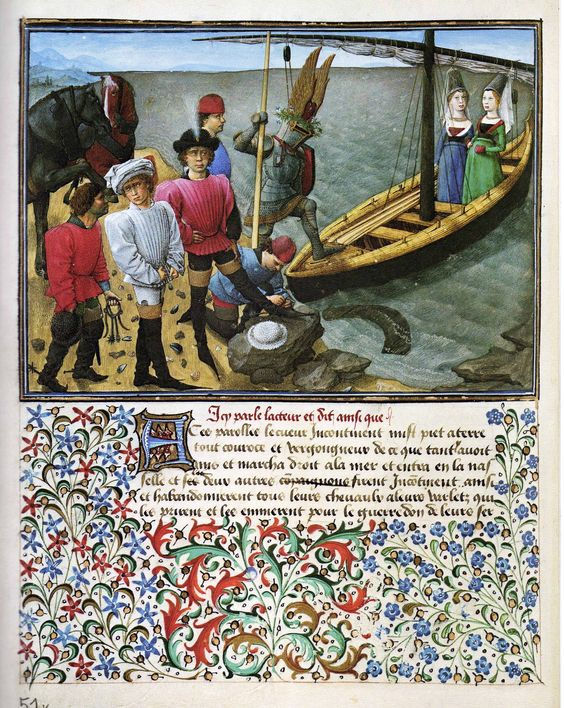 Icy parle lacteur et dit ainsi que
A ces parolles le cueur Incontinent mist piet a terre
tout couroce et vergongneux de ce que tant lavoit
mis et marcha droit a la mer et entra en la nas
selle et ses deux autres compaignons firent Incontinent ainsi
et habandonnerent tous leurs chevaulx a leurs varletz qui
les prirent et les emmenerent pour le guerredon de leurs ser
51v